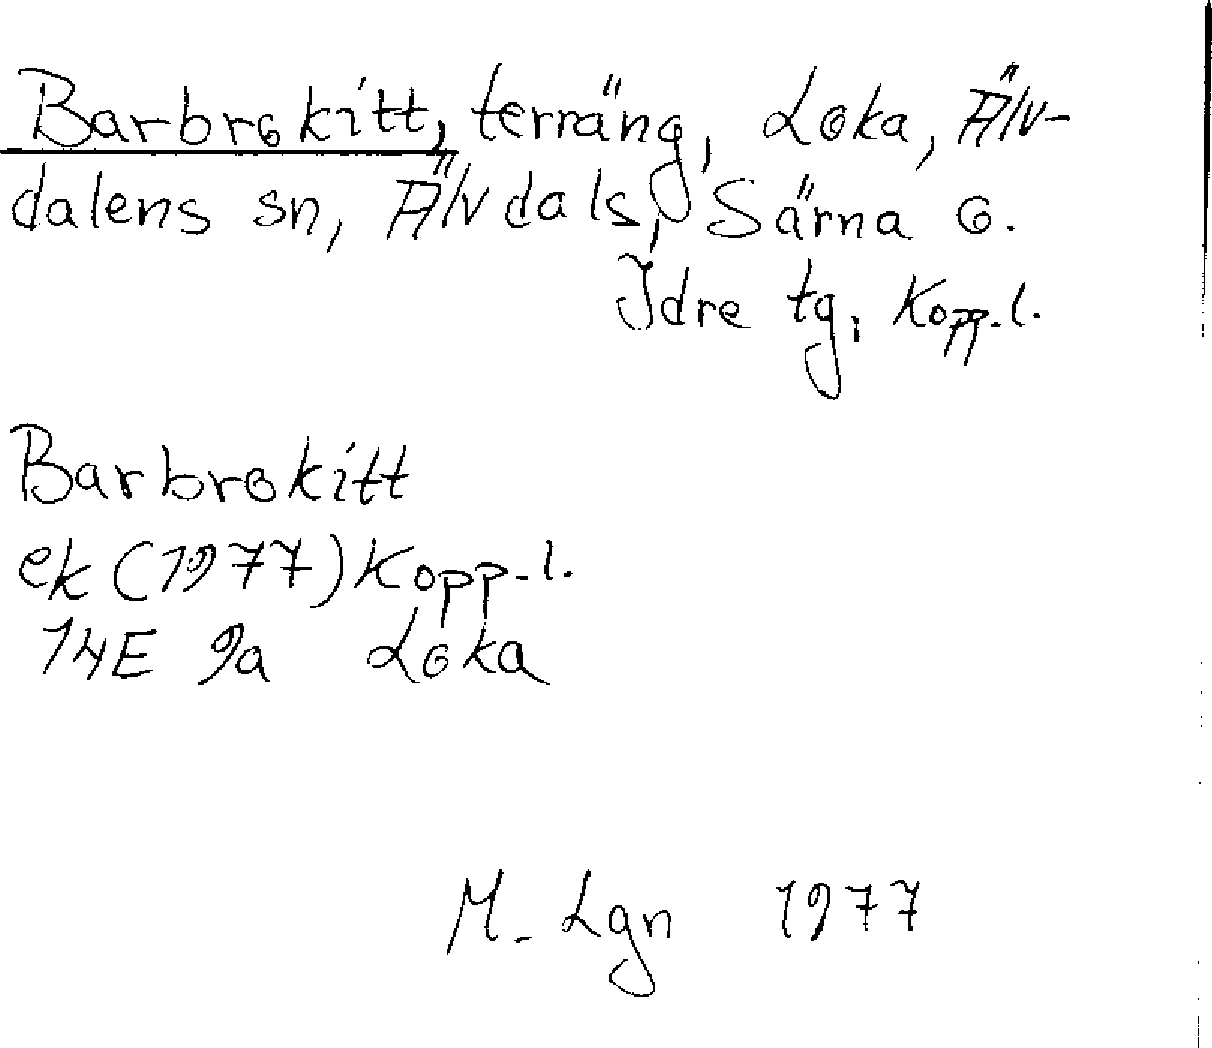 Barbrokitt, terräng, Loka, Älv-
dalens sn, Älvdals, Särna o.
Idre tg, Kopp.l.
Barbrokitt
ek (1977) Kopp.l.
14E 9a Loka
M. Lgn 1977